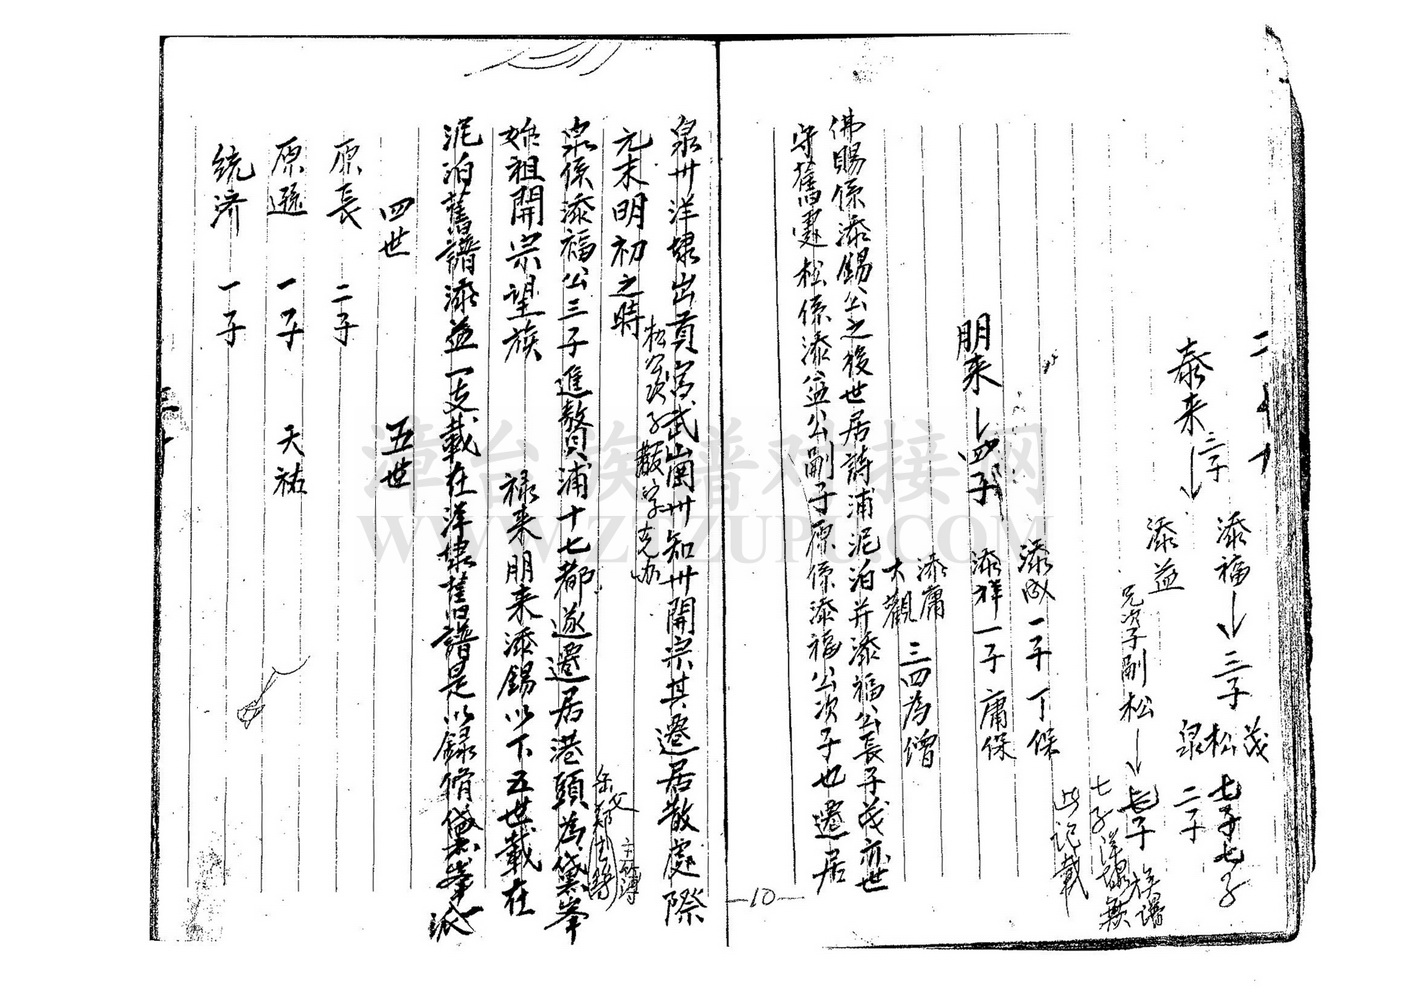 泰来 二子
添福 三子 茂 七子
松 七子
泉 二子
添益
兄次子嗣松 七子
七子 洋埭族谱無
此记载
朋来 四子
添成 一子 丁保
添祥 一子 庸保
添庸
大觀 三四為僧
佛賜係添錫公之後世居詩浦泥泊并添福公長子茂亦世
守舊處松係添益公嗣子原係添福公次子也遷居
-10-
泉卅洋埭出貢官武崗卅知卅開宗其遷居散處際
元末明初之時
松公次子
泉係添福公三子進贅貝浦十七都遂遷居港頭為黛峯
始祖開宗望族 禄来朋来添錫以下五世載在
泥泊舊譜添益一支載在洋埭舊譜是以録脩黛峯派
四世 五世
原長 二子
原遜 一子 天祐
统济 一子
漳台族谱对接网
WWW.ZTZUPU.COM